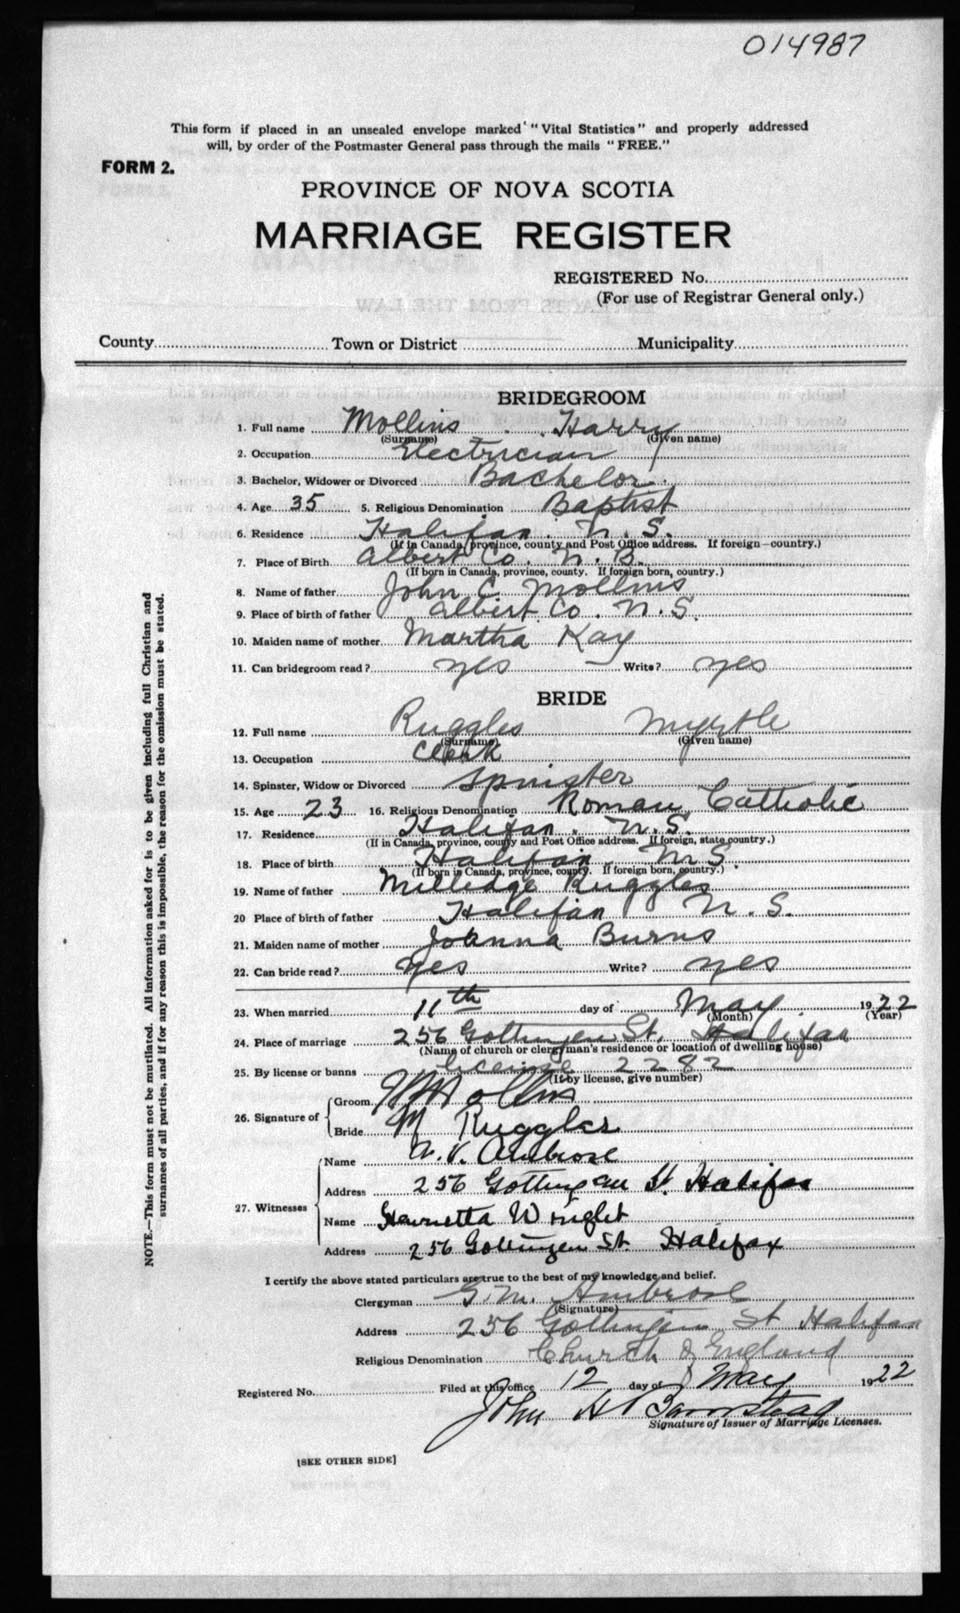 014987
This form if placed in an unsealed envelope marked "Vital Statistics" and properly addressed
will, by order of the Postmaster General pass through the mails "FREE."
FORM 2.
PROVINCE OF NOVA SCOTIA
MARRIAGE REGISTER
REGISTERED No.
(For use of Registrar General only.)
County Town or District Municipality
BRIDEGROOM
1. Full name Mollins Harry
(Surname) (Given name)
2. Occupation Electrician
3. Bachelor, Widower or Divorced Bachelor
4. Age 35 5. Religious Denomination Baptist
6. Residence Halifax. N. S.
(If in Canada, province, county and Post Office address. If foreign—country.)
7. Place of Birth Albert Co. N. B.
(If born in Canada, province, county. If foreign born, country.)
8. Name of father John C. Mollins
9. Place of birth of father Albert Co. N. S.
10. Maiden name of mother Martha Kay
11. Can bridegroom read? yes Write? yes
BRIDE
12. Full name Ruggles Myrtle
(Surname) (Given name)
13. Occupation Clerk
14. Spinster, Widow or Divorced Spinster
15. Age 23 16. Religious Denomination Roman Catholic
17. Residence Halifax. N. S.
(If in Canada, province, county and Post Office address. If foreign, state country.)
18. Place of birth Halifax, N. S.
(If born in Canada, province, county. If foreign born, country.)
19. Name of father Milledge Ruggles
20 Place of birth of father Halifax N. S.
21. Maiden name of mother Joanna Burns
22. Can bride read? yes Write? yes
23. When married 11th day of May 1922
(Month) (Year)
24. Place of marriage 256 Gottingen St. Halifax
(Name of church or clergyman's residence or location of dwelling house)
25. By license or banns license 2282
(If by license, give number)
26. Signature of
Groom H Mollins
Bride M Ruggles
27. Witnesses
Name A. V. Ambrose
Address 256 Gottingen St. Halifax
Name Henrietta Wright
Address 256 Gottingen St. Halifax
I certify the above stated particulars are true to the best of my knowledge and belief.
Clergyman G. M. Ambrose
(Signature)
Address 256 Gottingen St Halifax
Religious Denomination Church of England
Registered No. Filed at this office 12 day of May 1922
John H Barnstead
Signature of Issuer of Marriage Licenses.
[SEE OTHER SIDE]
NOTE.—This form must not be mutilated. All information asked for is to be given including full Christian and
surnames of all parties, and if for any reason this is impossible, the reason for the omission must be stated.